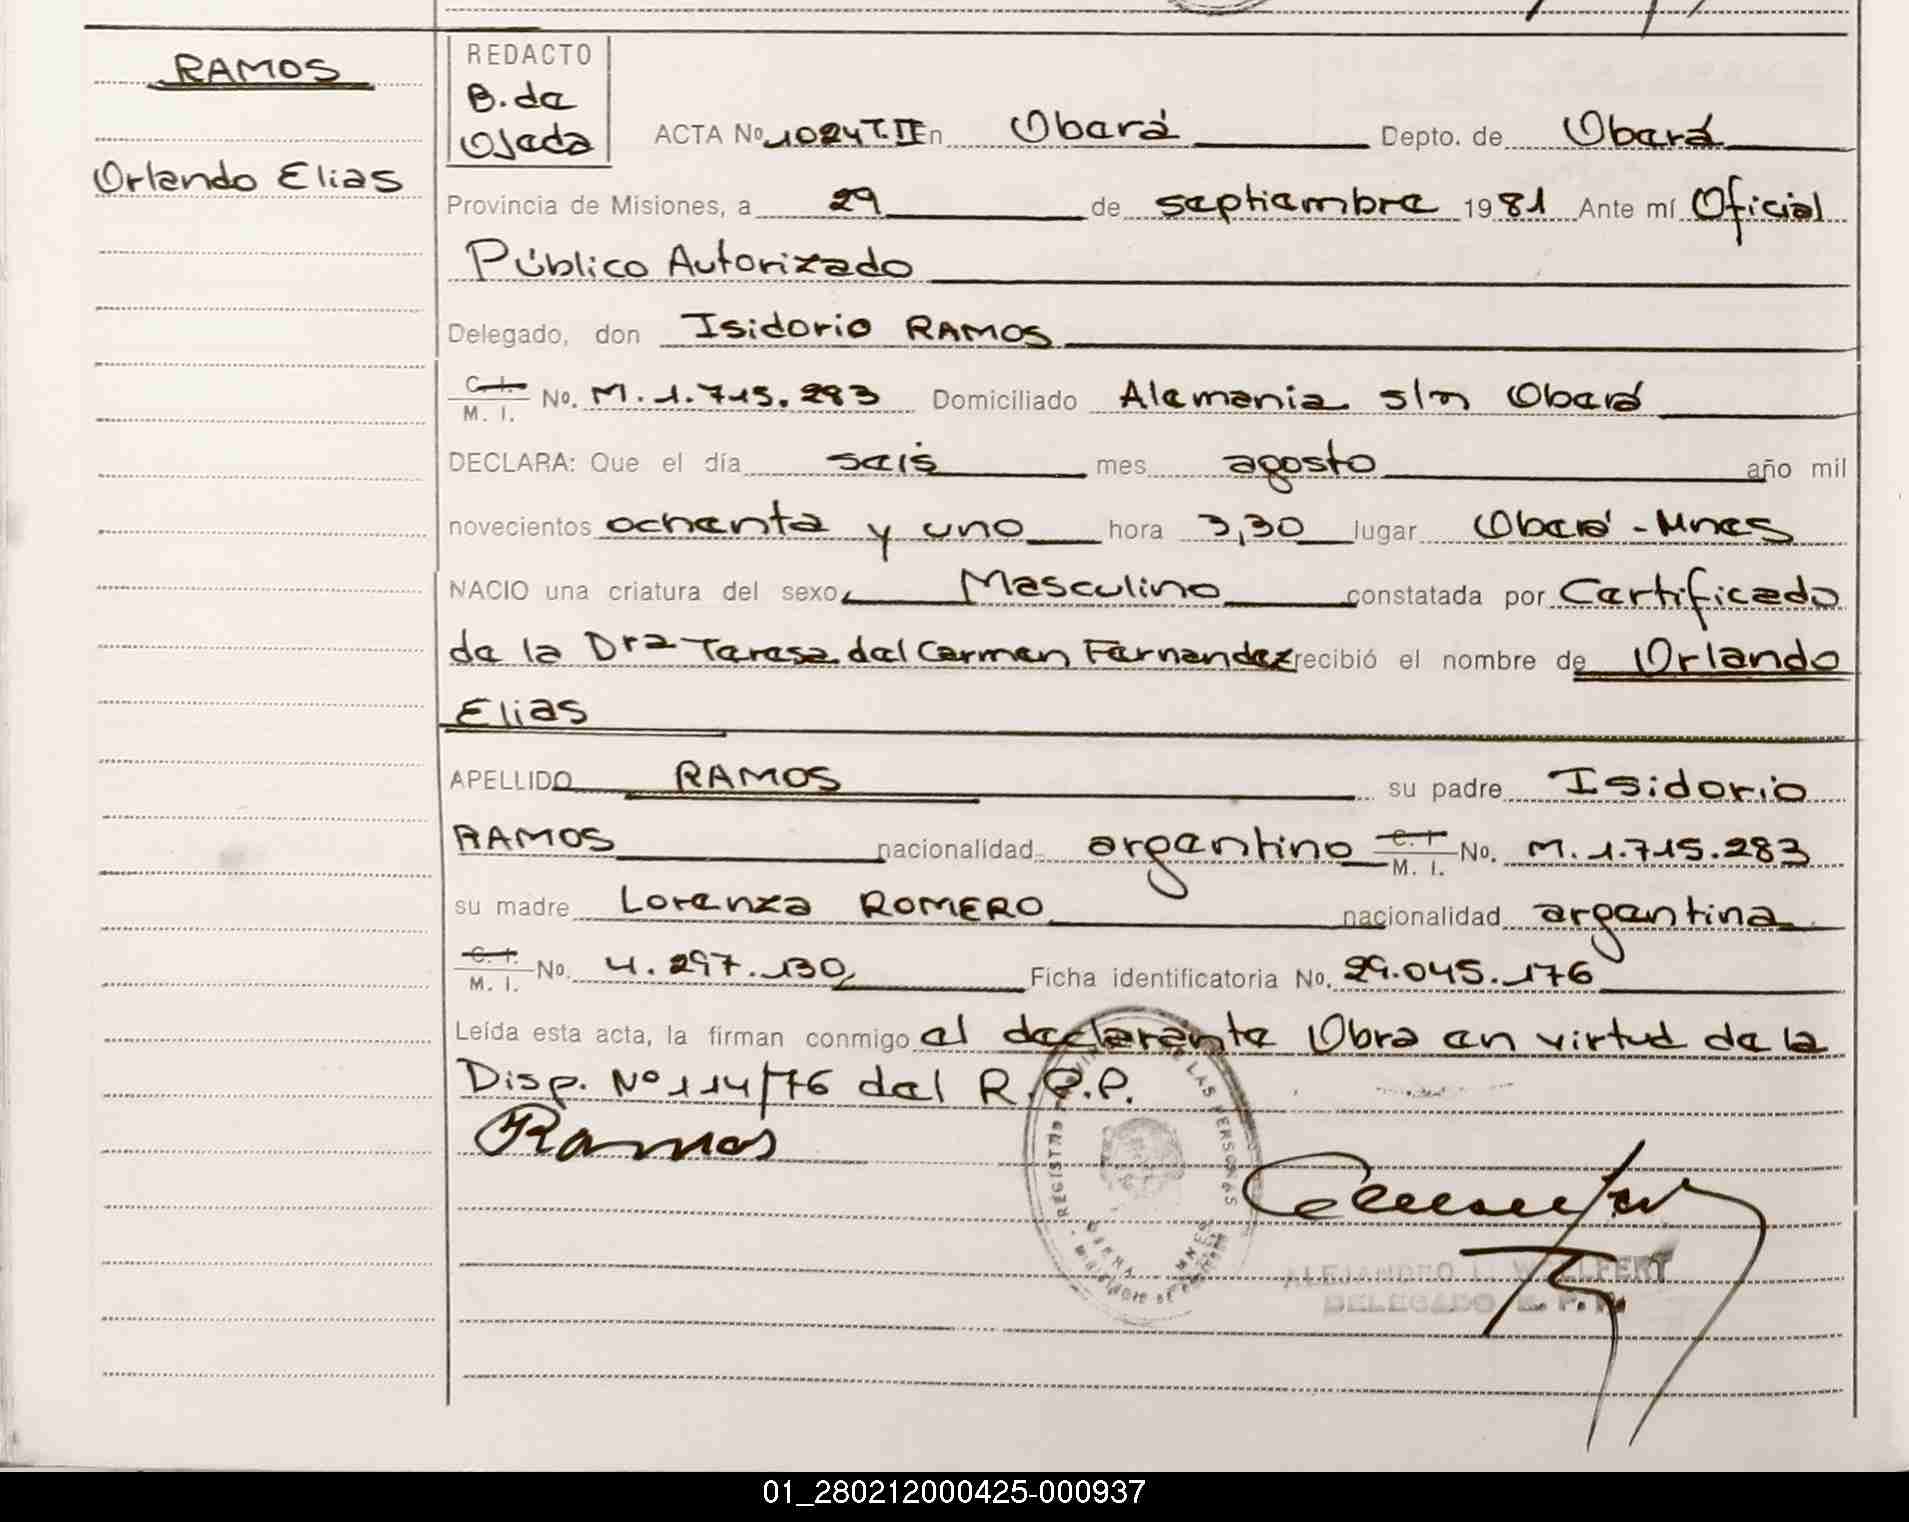 RAMOS
Orlando Elias
REDACTO
B. de
Ojeda
ACTA No. 1024 T. II En Oberá Depto. de Oberá
Provincia de Misiones, a 29 de septiembre 1981 Ante mí Oficial
Público Autorizado
Delegado, don Isidorio RAMOS
C. I.
M. I. No. M. 1.715.283 Domiciliado Alemania s/n Oberá
DECLARA: Que el día seis mes agosto año mil
novecientos ochenta y uno hora 3,30 lugar Oberá - Mnes
NACIO una criatura del sexo Masculino constatada por Certificado
de la Dra Teresa del Carmen Fernandez recibió el nombre de Orlando
Elias
APELLIDO RAMOS su padre Isidorio
RAMOS nacionalidad argentino C. I. M. I. No. M. 1.715.283
su madre Lorenza ROMERO nacionalidad argentina
C. I.
M. I. No. 4.297.130, Ficha identificatoria No. 29.045.176
Leída esta acta, la firman conmigo el declarante Obra en virtud de la
Disp. Nº 114/76 del R.P.P.
Ramos
REGISTRO LAS PERSONAS
OBERA MNES
ALEJANDRO WELFERT
DELEGADO R. P. P.
01_280212000425-000937